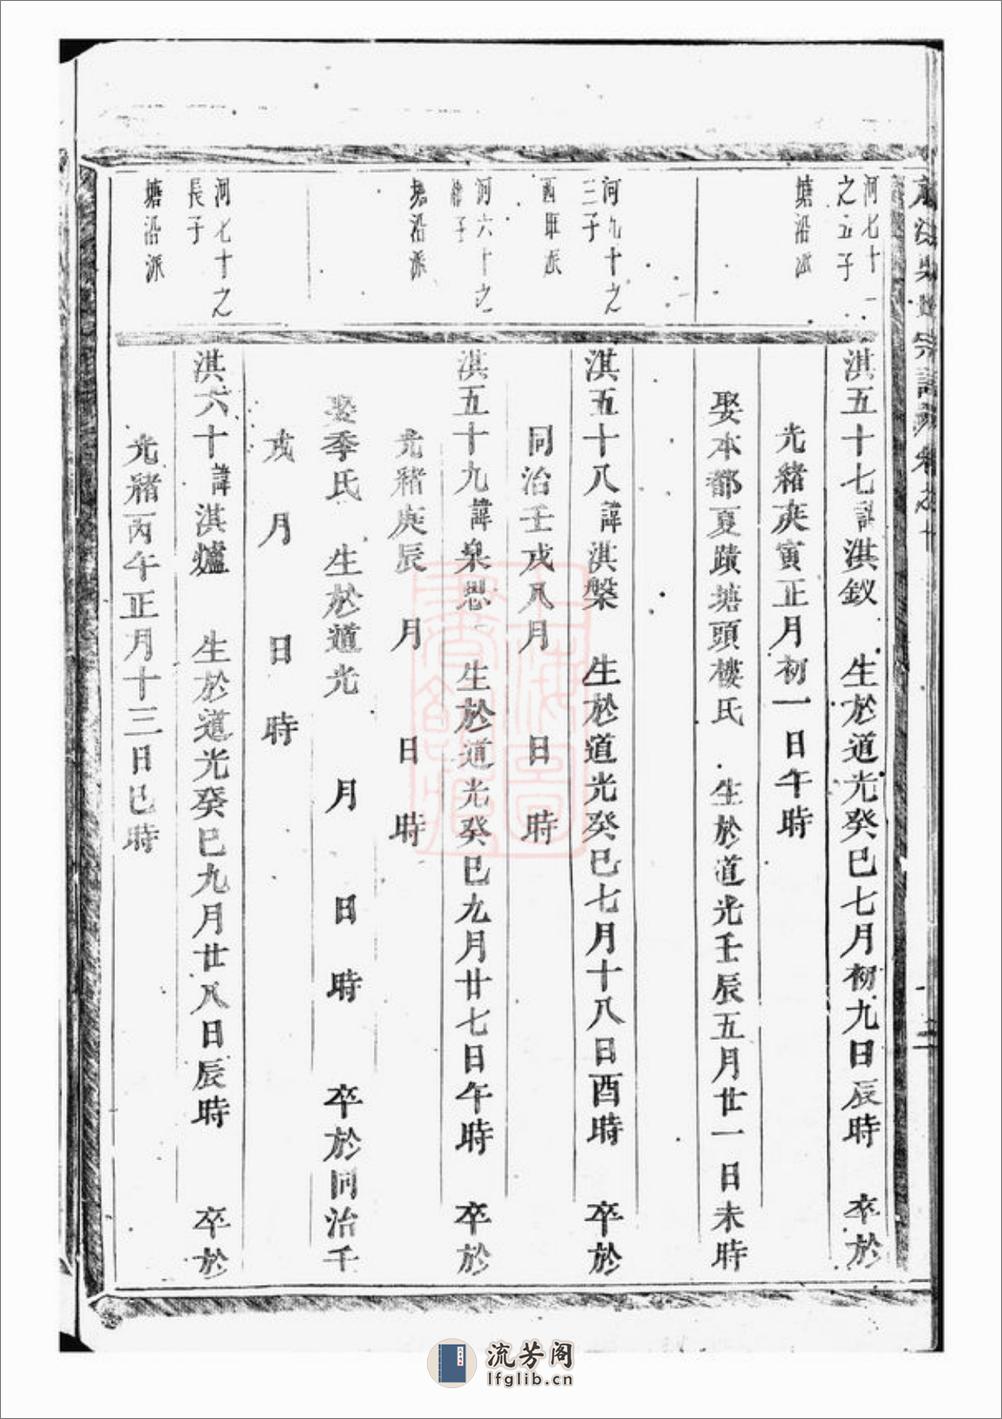 河七十一
之五子
塘沿派
淇五十七諱淇釵 生於道光癸巳七月初九日辰時 卒於
光緒庚寅正月初一日午時
娶本都夏蹟塘頭樓氏 生於道光壬辰五月廿一日未時
河九十之
三子
淇五十八諱淇槃 生於道光癸巳七月十八日酉時 卒於
同治壬戌八月 日 時
河六十之
子
塘沿派
淇五十九諱泉恩 生於道光癸巳九月廿七日午時 卒於
光緒庚辰 月 日 時
娶季氏 生於道光 月 日 時 卒於同治壬
戌 月 日 時
河七十之
長子
塘沿派
淇六十諱淇爐 生於道光癸巳九月廿八日辰時 卒於
光緒丙午正月十三日巳時
流芳阁
lfglib.cn